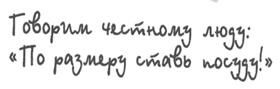 Говорим честному люду:
«По размеру ставь посуду!»